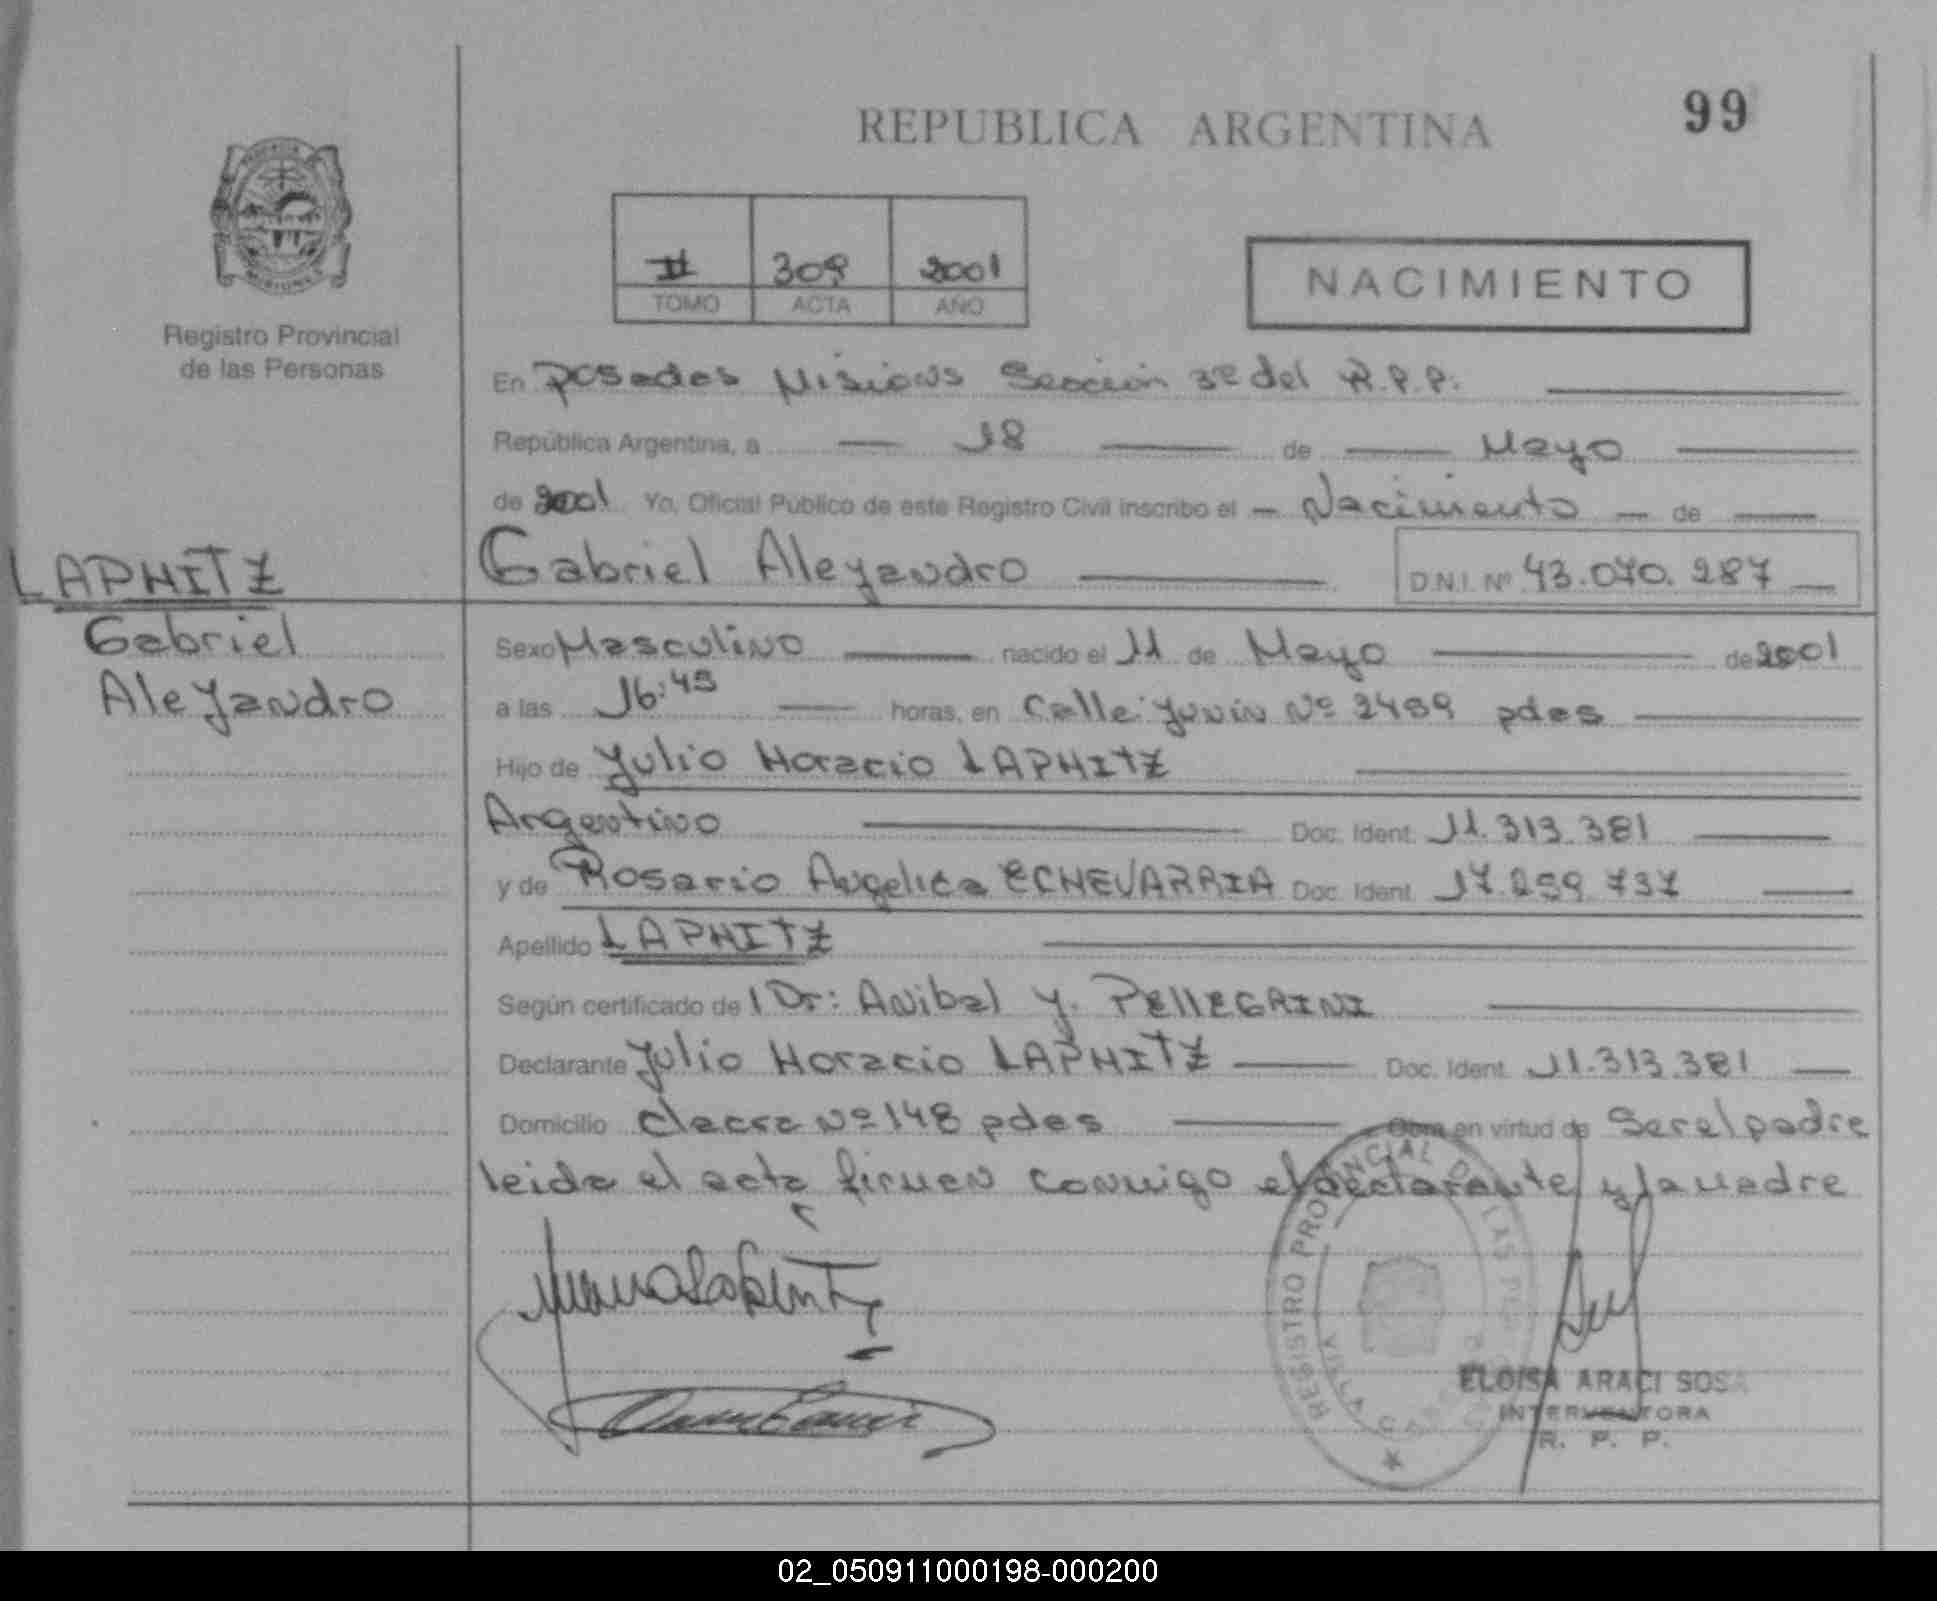 REPUBLICA ARGENTINA
99
II 309 2001
TOMO ACTA AÑO
NACIMIENTO
Registro Provincial
de las Personas
En Posadas Misiones Sección 3ª del R.P.P.
República Argentina, a 18 de Mayo
de 2001 Yo, Oficial Público de este Registro Civil inscribo el Nacimiento de
LAPHITZ
Gabriel
Aleyandro
Gabriel Aleyandro D.N.I. Nº 43.070.287
Sexo Masculino nacido el 11 de Mayo de 2001
a las 16:45 horas, en Calle Yunin Nº 2489 pdas
Hijo de Yulio Horacio LAPHITZ
Argentino Doc. Ident. 11.313.381
y de Rosario Angelica ECHEVARRIA Doc. Ident. 17.259.737
Apellido LAPHITZ
Según certificado de l Dr: Anibal Y. PELLEGRINI
Declarante Yulio Horacio LAPHITZ Doc. Ident. 11.313.381
Domicilio Chacra Nº 148 pdas Obra en virtud de Ser el padre
leida el acta firman conmigo el declarante y la madre
REGISTRO PROVINCIAL DE LAS
ELOISA ARACI SOSA
INTERVENTORA
R. P. P.
02_050911000198-000200